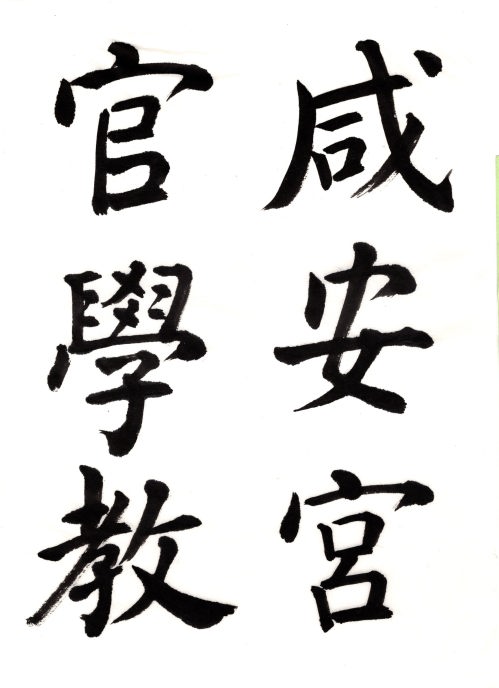 咸安宮
官學教